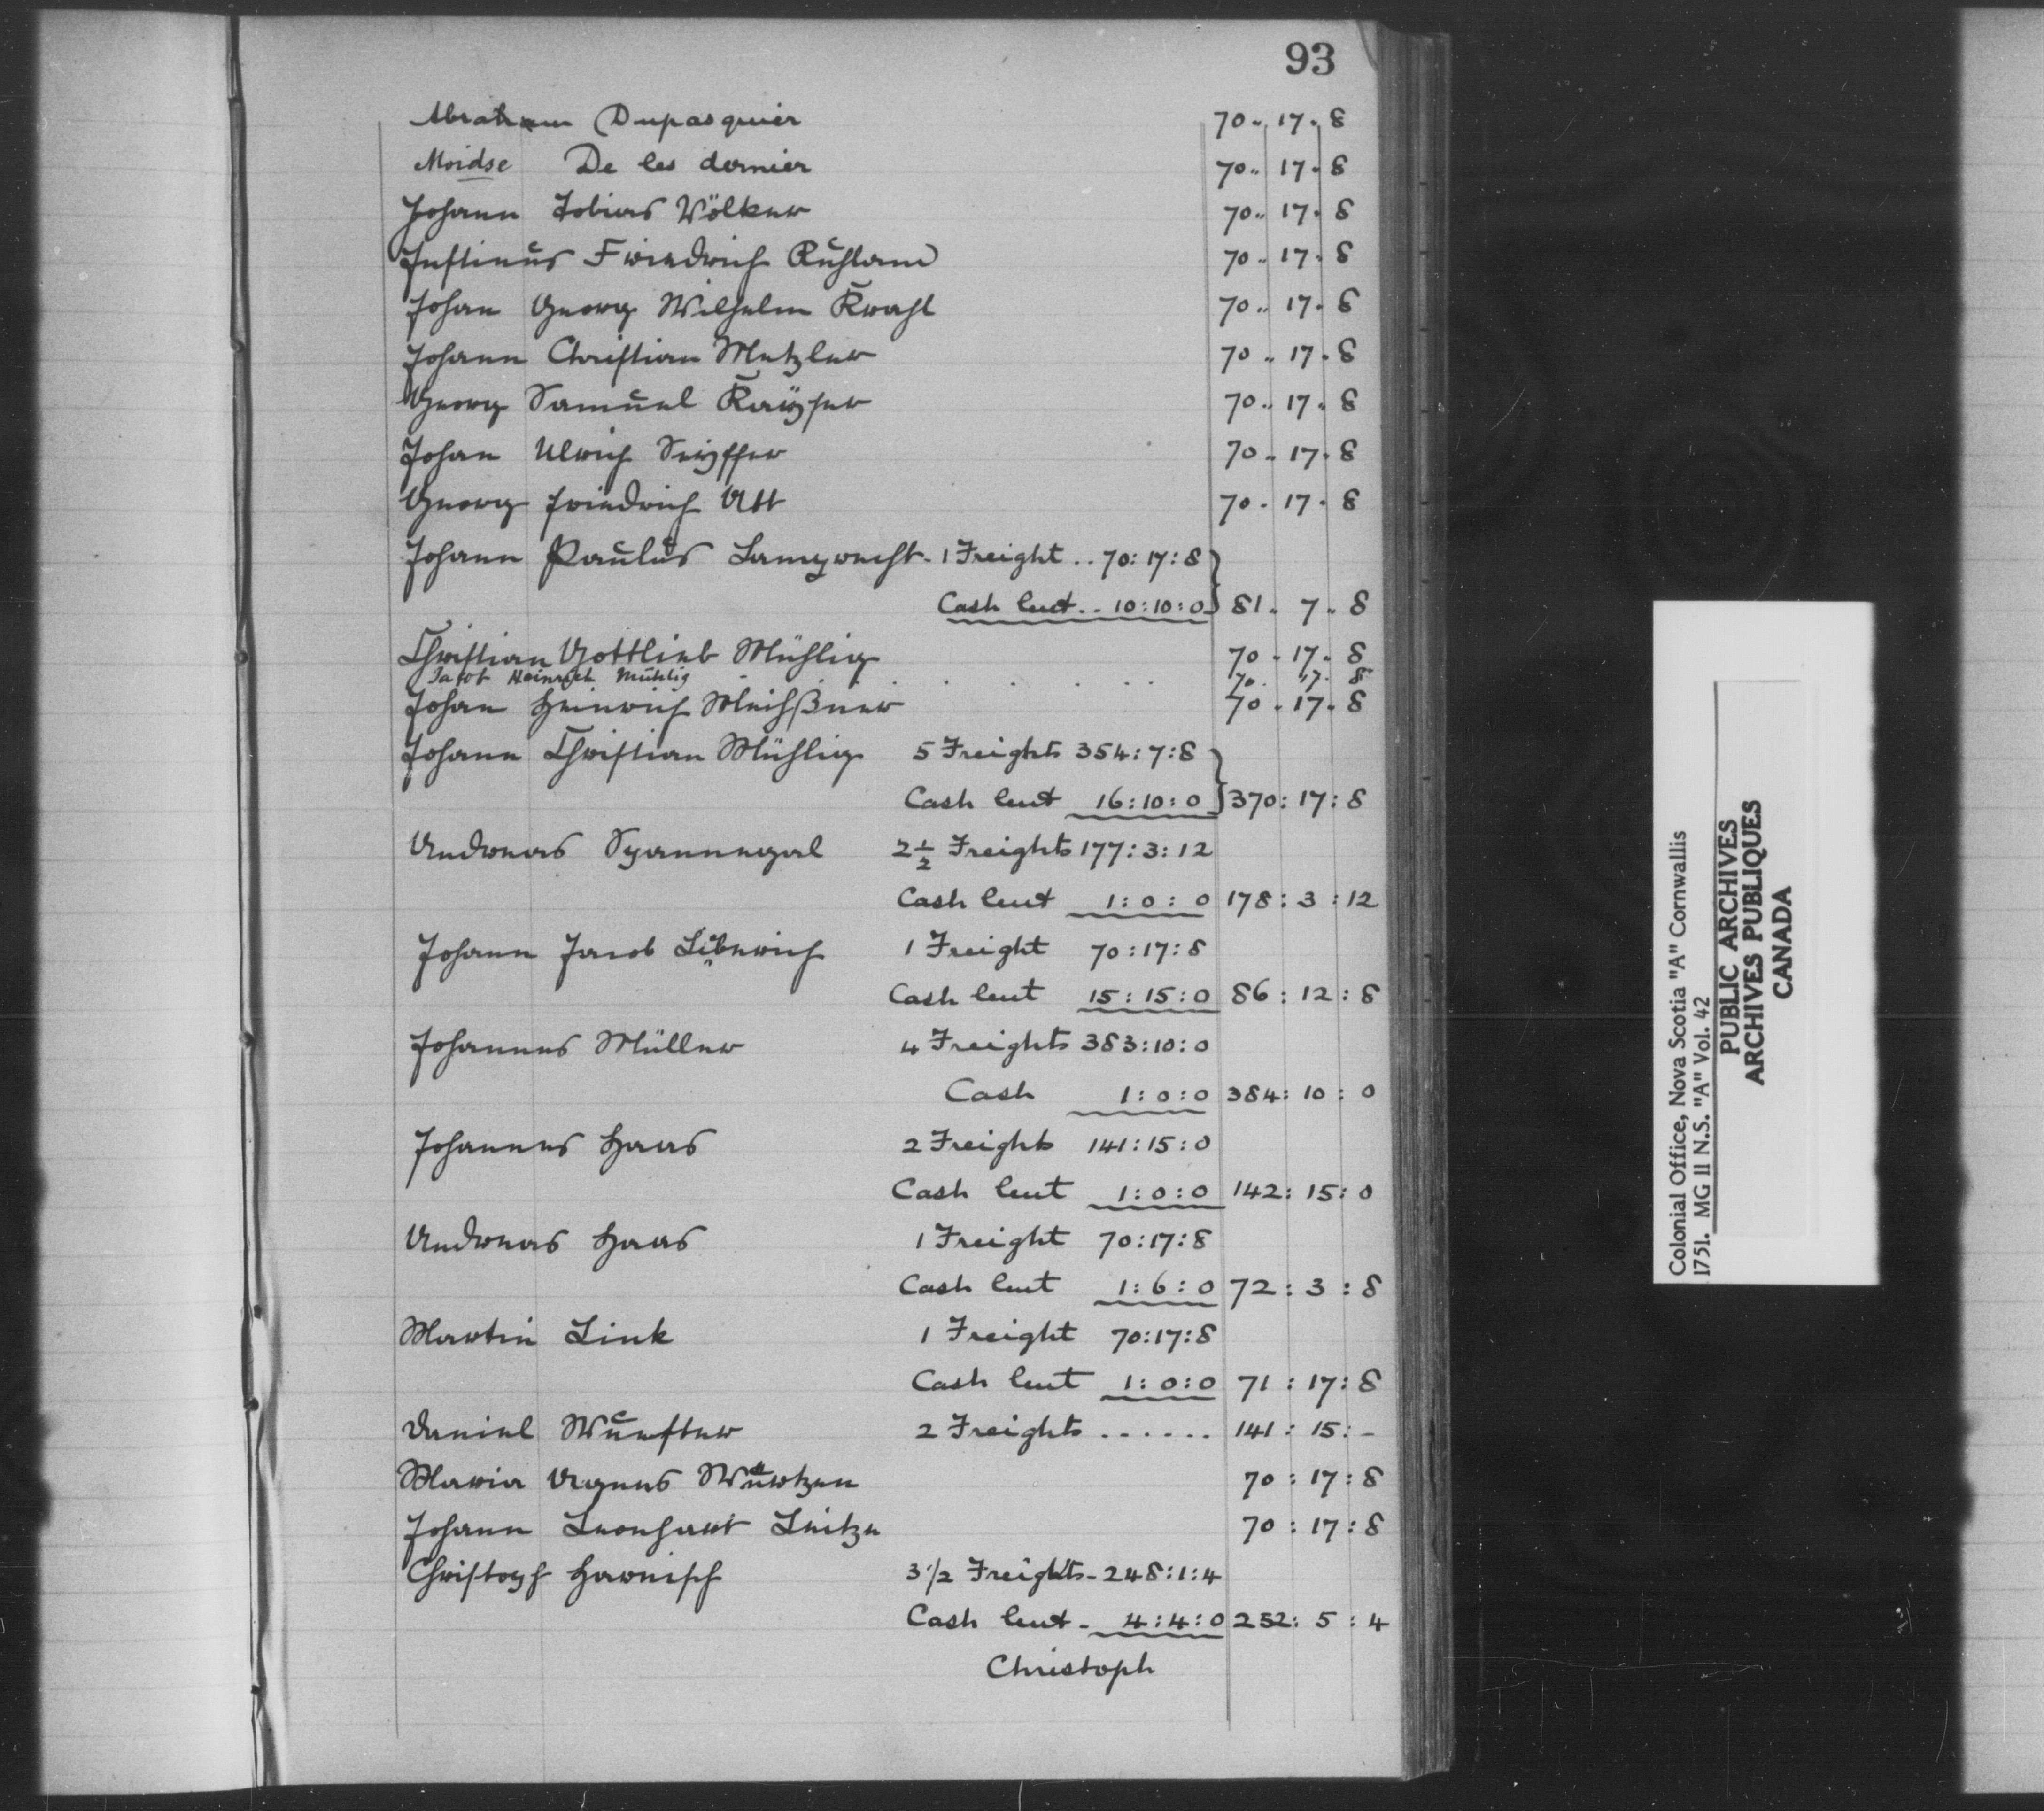 93
Abraham Dupasquier 70 " 17 " 8
Moidse De les dernier 70 " 17 " 8
Johann Tobias Völker 70 " 17 " 8
Justinus Friedrich Ruhland 70 " 17 " 8
Johan Georg Wilhelm Krahl 70 " 17 " 8
Johann Christian Metzler 70 " 17 " 8
Georg Samuel Kaÿser 70 " 17 " 8
Johan Ulrich Seÿffer 70 " 17 " 8
Georg Friedrich Ott 70 " 17 " 8
Johann Paulus Lamprecht - 1 Freight .. 70:17:8
Cash lent .. 10:10:0 81 " 7 " 8
Christian Gottlieb Mühlig 70 " 17 " 8
Jacob Heinrich Mühlig 70 . 17 . 8
Johan Heinrich Meihßner 70 " 17 " 8
Johann Christian Mühlig 5 Freights 354:7:8
Cash lent 16:10:0 370:17:8
Andreas Spannagal 2 1/2 Freights 177:3:12
Cash lent 1:0:0 178:3:12
Johann Jacob Liberich 1 Freight 70:17:8
Cash lent 15:15:0 86:12:8
Johannes Müller 4 Freights 383:10:0
Cash 1:0:0 384:10:0
Johannes Haas 2 Freights 141:15:0
Cash lent 1:0:0 142:15:0
Andreas Haas 1 Freight 70:17:8
Cash lent 1:6:0 72:3:8
Martin Link 1 Freight 70:17:8
Cash lent 1:0:0 71:17:8
Daniel Wuester 2 Freights ...... 141:15:-
Maria Agnes Würtzen 70:17:8
Johann Leonhart Leitze 70:17:8
Christoph Harnisch 3 1/2 Freights - 248:1:4
Cash lent - 4:4:0 252:5:4
Christoph
Colonial Office, Nova Scotia "A" Cornwallis
1751. MG 11 N.S. "A" Vol. 42
PUBLIC ARCHIVES
ARCHIVES PUBLIQUES
CANADA